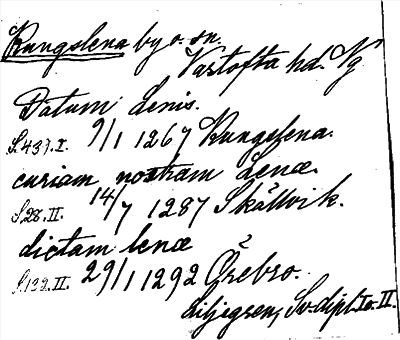 Kungslena by o. sn.
Vartofta hd. Vg
Datum Lenis.
S.437.I. 9/1 1267 Kungslena.
curiam nostram Lenæ.
S.28.II. 14/7 1287 Skällvik.
dictam lenæ
S.132.II. 29/1 1292 Örebro.
Liljegren, Sv. dipl. I o. II.